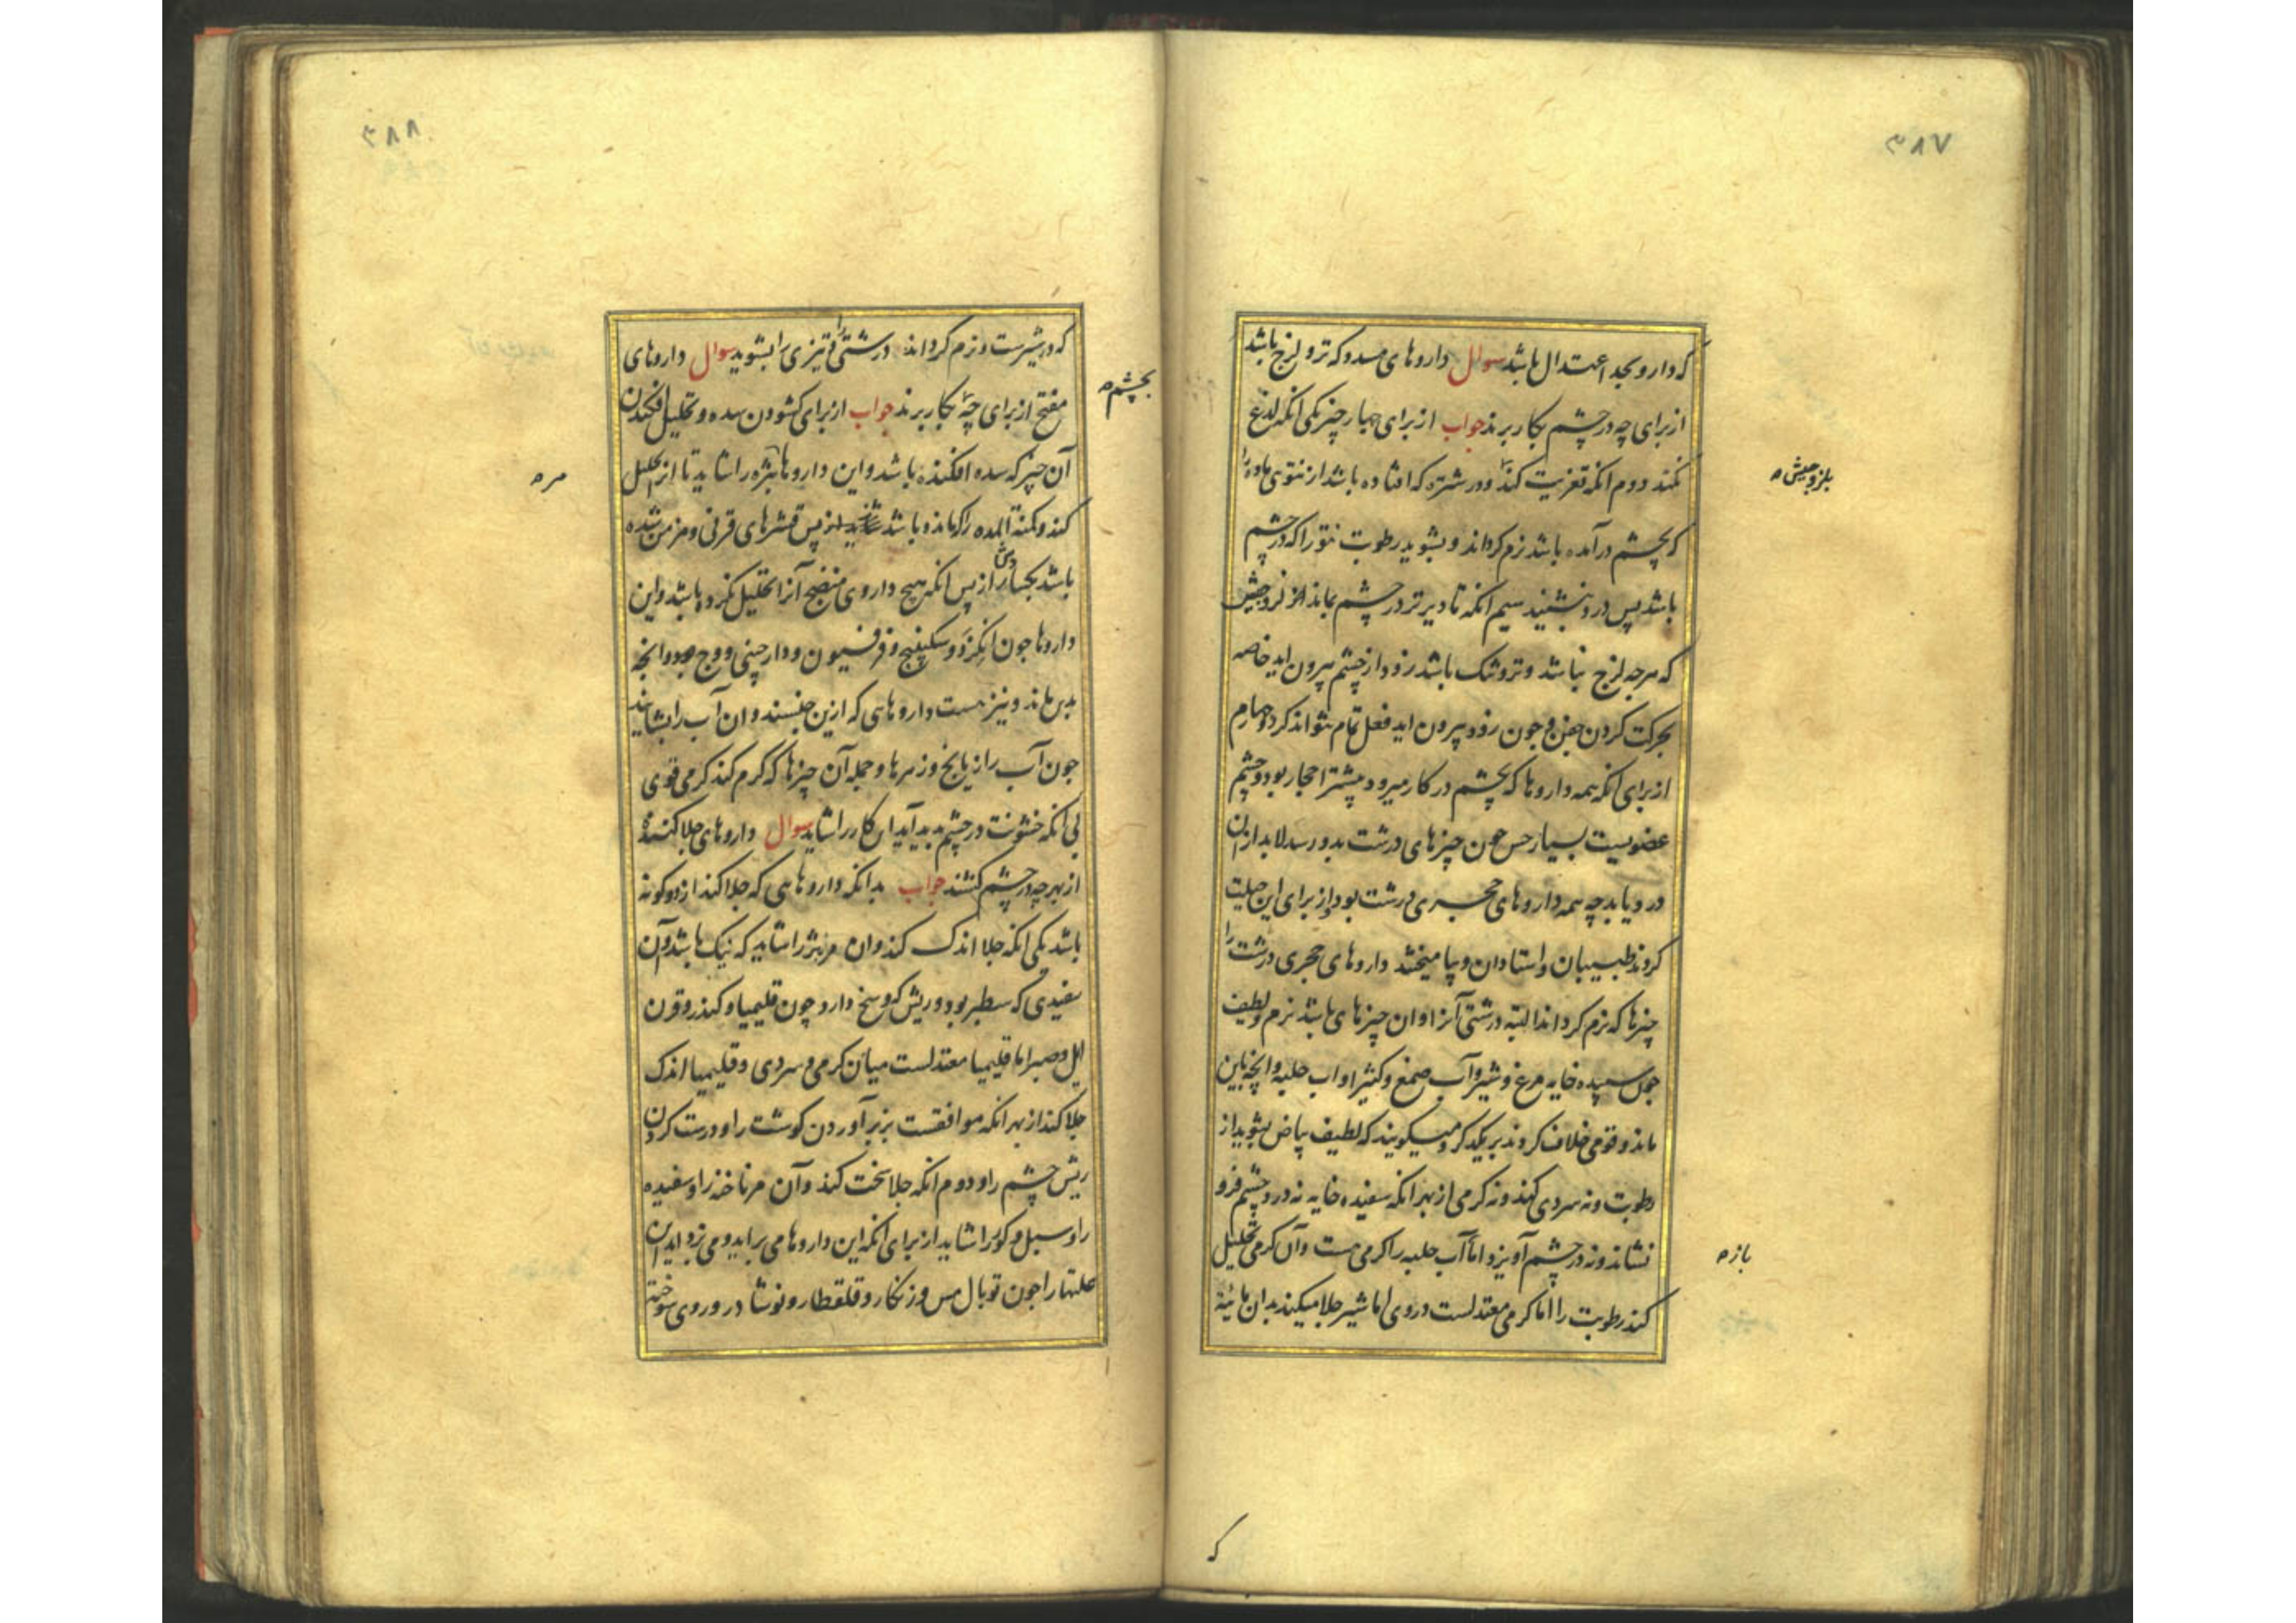 ۳۸۷
که دارو بحد اعتدال باشد سوال داروهای مسدد که تر و لزج باشد
از برای چه در چشم بکار برند جواب از برای چهار چیز یکی انکه لذع
نکند دوم انکه تغریت کند و درشتی که افتاده باشد از نتوی ماده را
که بچشم درآمده باشد نرم کرداند و بشوید رطوبت نتو را که در چشم
باشد پس درد بنشیند سیم انکه تا دیرتر در چشم بماند از لزوجیتش
که هرچه لزج نباشد و تر و تنک باشد زود از چشم بیرون اید خاصه
بحرکت کردن جفن و چون زود بیرون اید فعل تمام نتواند کرد و چهارم
از برای انکه همه داروها که بچشم در کار میرود بیشتر احجار بود و چشم
عضویست بسیار حس چون چیزهای درشت بدو رسد لابد از ان
درد یابد چه همه داروهای حجری درشت بود از برای این حیلت
کردند طبیبان و استادان و بیامیختند داروهای حجری درشت را
چیزها که نرم کرداند البته درشتی آنرا و ان چیزهای باشد نرم و لطیف
چون سپیده خایه مرغ و شیر و آب صمغ و کثیرا و اب حلبه و انچه باین
ماند و قومی خلاف کردند بر یکدکر و میکویند که لطیف بیاض بشوید از
رطوبت و نه سردی کند و نه کرمی از بهر انکه سفیده خایه نه در چشم فرو
نشاند و نه در چشم آویزد اما آب حلبه را کرمی هست و آن کرمی تحلیل
کند رطوبت را اما کرمی معتدلست در وی اما شیر جلا میکند بدان مائیة
بلزوجیتش
بازه
که
۳۸۸
که در شیرست و نرم کرداند درشتی را و تیزی را بشوید سوال داروهای
مفتح از برای چه بکار برند جواب از برای کشودن سده و تحلیل افکندن
آن چیز که سده افکنده باشد و این داروها بثره را شاید تا از تحلیل
کند و کمنة المده را که مانده باشد از پس قشرهای قرنی و مزمن شده
باشد از پس انکه هیچ داروی منضج آنرا تحلیل نکرده باشد و این
داروها چون انکزد و سکبینج و فرفیون و دارچینی و وج و انچه
بدین ماند و نیز هست داروهایی که ازین جنسند و ان آب را بشاید
چون آب رازیانج و زهرها و جمله آن چیزها که کرم کند کرمی قوی
بی انکه خشونت در چشم پدید آید ان کار را شاید سوال داروهای جلا کننده
از بهر چه در چشم کنند جواب بدانکه داروهایی که جلا کند از دو کونه
باشد یکی انکه جلا اندک کند و ان مر بثر را شاید که نیک باشد و آن
سفیدی که سطبر بود و ریش که وسخ دارد چون قلیمیا و کندر و قرن
ایل و صبر اما قلیمیا معتدلست میان کرمی و سردی و قلیمیا اندک
جلا کند از بهر انکه موافقست بزبر آوردن کوشت را و درست کردن
ریش چشم را و دوم انکه جلا سخت کند و آن مر ناخنه را و سفیده
را و سبل و کوررا شاید از برای انکه این داروها می براید و می زداید ان
علتها را چون توبال مس و زنکار و قلقطار و نوشادر و روی سوخته
بچشم